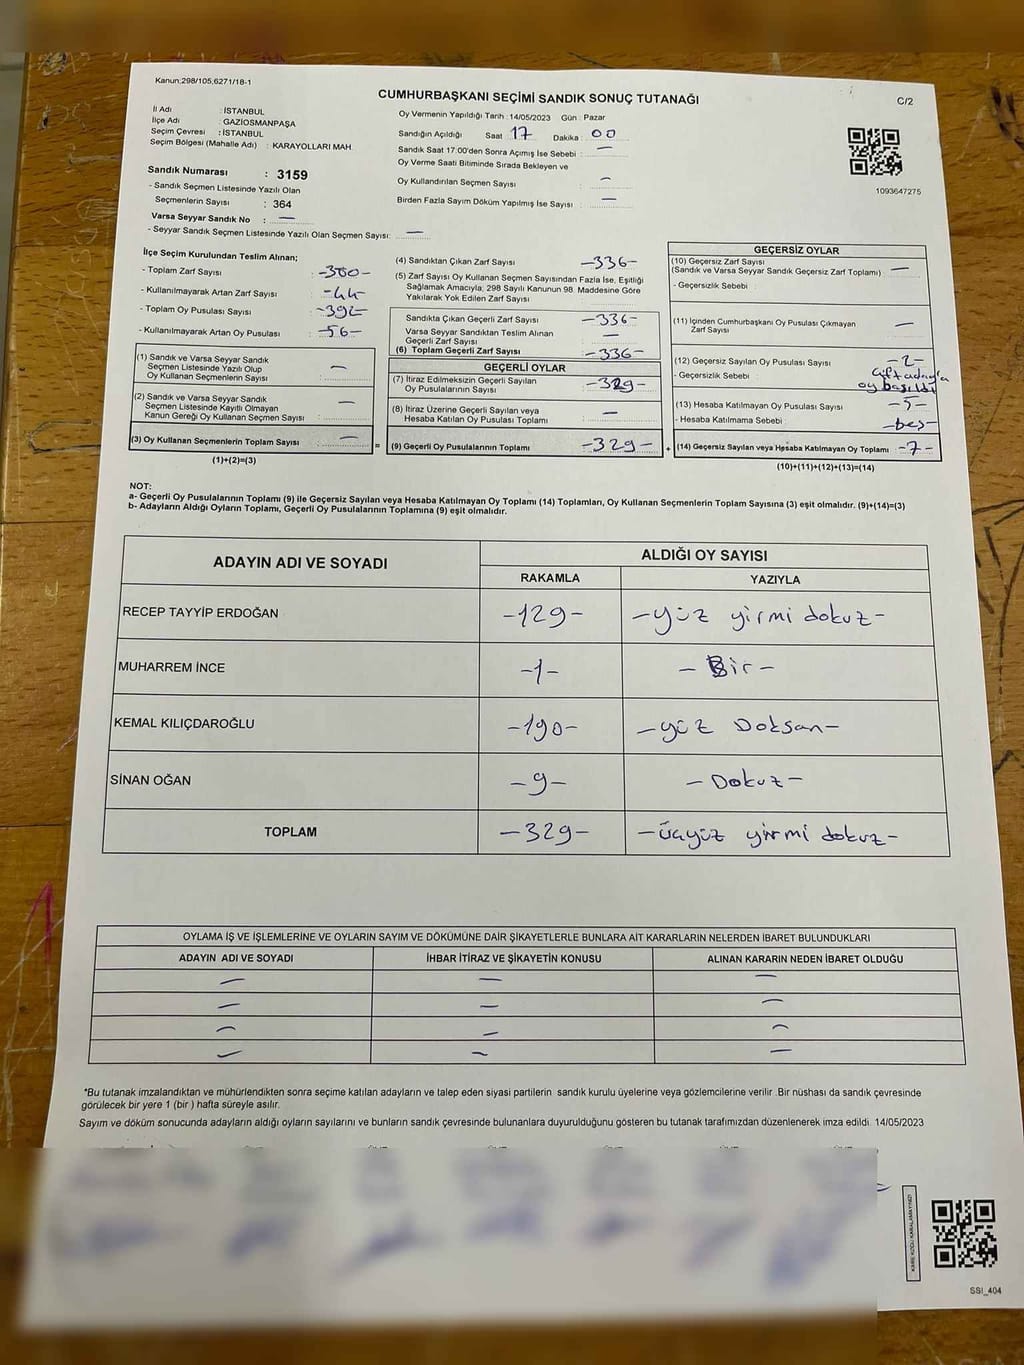 Kanun:298/105,6271/18-1
CUMHURBAŞKANI SEÇİMİ SANDIK SONUÇ TUTANAĞI
C/2
İl Adı : İSTANBUL
İlçe Adı : GAZİOSMANPAŞA
Seçim Çevresi : İSTANBUL
Seçim Bölgesi (Mahalle Adı) : KARAYOLLARI MAH
Sandık Numarası : 3159
- Sandık Seçmen Listesinde Yazılı Olan
Seçmenlerin Sayısı : 364
Varsa Seyyar Sandık No : —
- Seyyar Sandık Seçmen Listesinde Yazılı Olan Seçmen Sayısı: —
Oy Vermenin Yapıldığı Tarih : 14/05/2023 Gün : Pazar
Sandığın Açıldığı Saat 17 Dakika : 00
Sandık Saat 17:00'den Sonra Açımış İse Sebebi : —
Oy Verme Saati Bitiminde Sırada Bekleyen ve
Oy Kullandırılan Seçmen Sayısı : —
Birden Fazla Sayım Döküm Yapılmış İse Sayısı : —
1093647275
İlçe Seçim Kurulundan Teslim Alınan;
- Toplam Zarf Sayısı -380-
- Kullanılmayarak Artan Zarf Sayısı : -44-
- Toplam Oy Pusulası Sayısı : -392-
- Kullanılmayarak Artan Oy Pusulası : -56-
(1) Sandık ve Varsa Seyyar Sandık
Seçmen Listesinde Yazılı Olup
Oy Kullanan Seçmenlerin Sayısı : —
(2) Sandık ve Varsa Seyyar Sandık
Seçmen Listesinde Kayıtlı Olmayan
Kanun Gereği Oy Kullanan Seçmen Sayısı : —
(3) Oy Kullanan Seçmenlerin Toplam Sayısı : — =
(1)+(2)=(3)
(4) Sandıktan Çıkan Zarf Sayısı : -336-
(5) Zarf Sayısı Oy Kullanan Seçmen Sayısından Fazla İse, Eşitliği
Sağlamak Amacıyla; 298 Sayılı Kanunun 98. Maddesine Göre
Yakılarak Yok Edilen Zarf Sayısı :
Sandıkta Çıkan Geçerli Zarf Sayısı : -336-
Varsa Seyyar Sandıktan Teslim Alınan
Geçerli Zarf Sayısı : —
(6) Toplam Geçerli Zarf Sayısı : -336-
GEÇERLİ OYLAR
(7) İtiraz Edilmeksizin Geçerli Sayılan
Oy Pusulalarının Sayısı : -329-
(8) İtiraz Üzerine Geçerli Sayılan veya
Hesaba Katılan Oy Pusulası Toplamı : —
(9) Geçerli Oy Pusulalarının Toplamı : -329- +
GEÇERSİZ OYLAR
(10) Geçersiz Zarf Sayısı
(Sandık ve Varsa Seyyar Sandık Geçersiz Zarf Toplamı) : —
- Geçersizlik Sebebi :
(11) İçinden Cumhurbaşkanı Oy Pusulası Çıkmayan
Zarf Sayısı : —
(12) Geçersiz Sayılan Oy Pusulası Sayısı : -2-
- Geçersizlik Sebebi : Çift adayla
oy basıldı
(13) Hesaba Katılmayan Oy Pusulası Sayısı : -5-
- Hesaba Katılmama Sebebi : -beş-
(14) Geçersiz Sayılan veya Hesaba Katılmayan Oy Toplamı : -7-
(10)+(11)+(12)+(13)=(14)
NOT:
a- Geçerli Oy Pusulalarının Toplamı (9) ile Geçersiz Sayılan veya Hesaba Katılmayan Oy Toplamı (14) Toplamları, Oy Kullanan Seçmenlerin Toplam Sayısına (3) eşit olmalıdır. (9)+(14)=(3)
b- Adayların Aldığı Oyların Toplamı, Geçerli Oy Pusulalarının Toplamına (9) eşit olmalıdır.
ADAYIN ADI VE SOYADI
ALDIĞI OY SAYISI
RAKAMLA YAZIYLA
RECEP TAYYİP ERDOĞAN -129- -yüz yirmi dokuz-
MUHARREM İNCE -1- -Bir-
KEMAL KILIÇDAROĞLU -190- -yüz Doksan-
SİNAN OĞAN -9- -Dokuz-
TOPLAM -329- -üçyüz yirmi dokuz-
OYLAMA İŞ VE İŞLEMLERİNE VE OYLARIN SAYIM VE DÖKÜMÜNE DAİR ŞİKAYETLERLE BUNLARA AİT KARARLARIN NELERDEN İBARET BULUNDUKLARI
ADAYIN ADI VE SOYADI İHBAR İTİRAZ VE ŞİKAYETİN KONUSU ALINAN KARARIN NEDEN İBARET OLDUĞU
— — —
— — —
— — —
— — —
*Bu tutanak imzalandıktan ve mühürlendikten sonra seçime katılan adayların ve talep eden siyasi partilerin sandık kurulu üyelerine veya gözlemcilerine verilir. Bir nüshası da sandık çevresinde
görülecek bir yere 1 (bir ) hafta süreyle asılır.
Sayım ve döküm sonucunda adayların aldığı oyların sayılarını ve bunların sandık çevresinde bulunanlara duyurulduğunu gösteren bu tutanak tarafımızdan düzenlenerek imza edildi. 14/05/2023
SSI_404